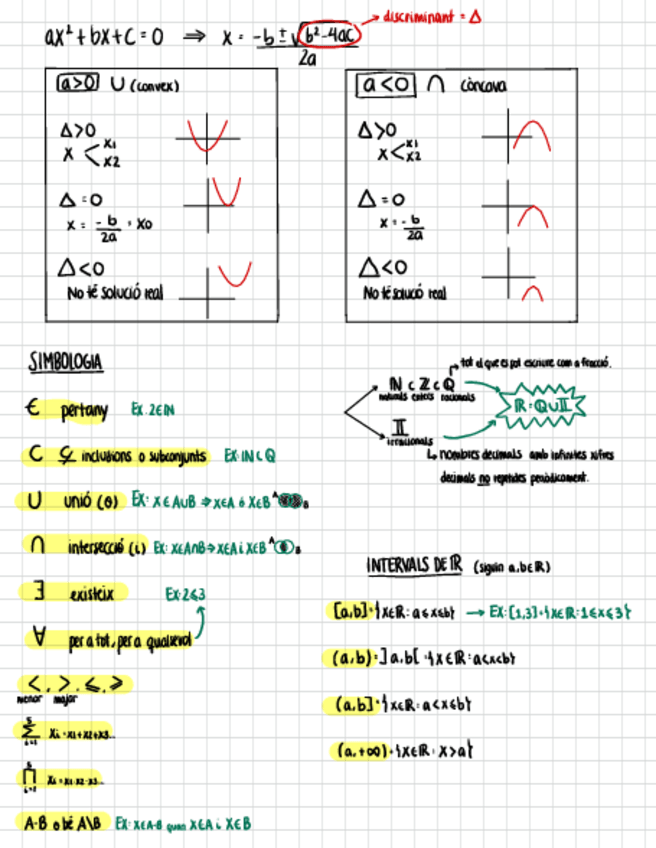 discriminant = Δ
ax² + bx + c = 0 ⇒ x = -b ± √b²-4ac
2a
a>0 ∪ (convex)
Δ>0
x < x1
x2
Δ=0
x = -b/2a = x0
Δ<0
No té solució real
a<0 ∩ còncava
Δ>0
x < x1
x2
Δ=0
x = -b/2a
Δ<0
No té solució real
SIMBOLOGIA
∈ pertany Ex. 2∈ℕ
⊂ ⊊ inclusions o subconjunts EX: ℕ⊂Q
∪ unió (o) EX: X∈A∪B ⇒ X∈A ó X∈B A B
∩ intersecció (i) EX: X∈A∩B ⇒ X∈A i X∈B A B
∃ existeix Ex: 2≤3
∀ per a tot, per a qualsevol
<, >, ≤, ≥
menor major
5
∑ xi = x1+x2+x3...
i=1
5
∏ xi = x1·x2·x3...
i=1
A-B o bé A\B EX: X∈A-B quan X∈A i X∈B
tot el que es pot escriure com a fracció.
ℕ ⊂ ℤ ⊂ Q
naturals enters racionals
ℝ = Q∪𝕀
𝕀
irracionals
nombres decimals amb infinites xifres
decimals no repetides periòdicament.
INTERVALS DE ℝ (siguin a,b∈ℝ)
[a,b] = {x∈ℝ: a≤x≤b} → EX: [1,3] = {x∈ℝ: 1≤x≤3}
(a,b) = ]a,b[ = {x∈ℝ: a<x<b}
(a,b] = {x∈ℝ: a<x≤b}
(a,+∞) = {x∈ℝ: x>a}